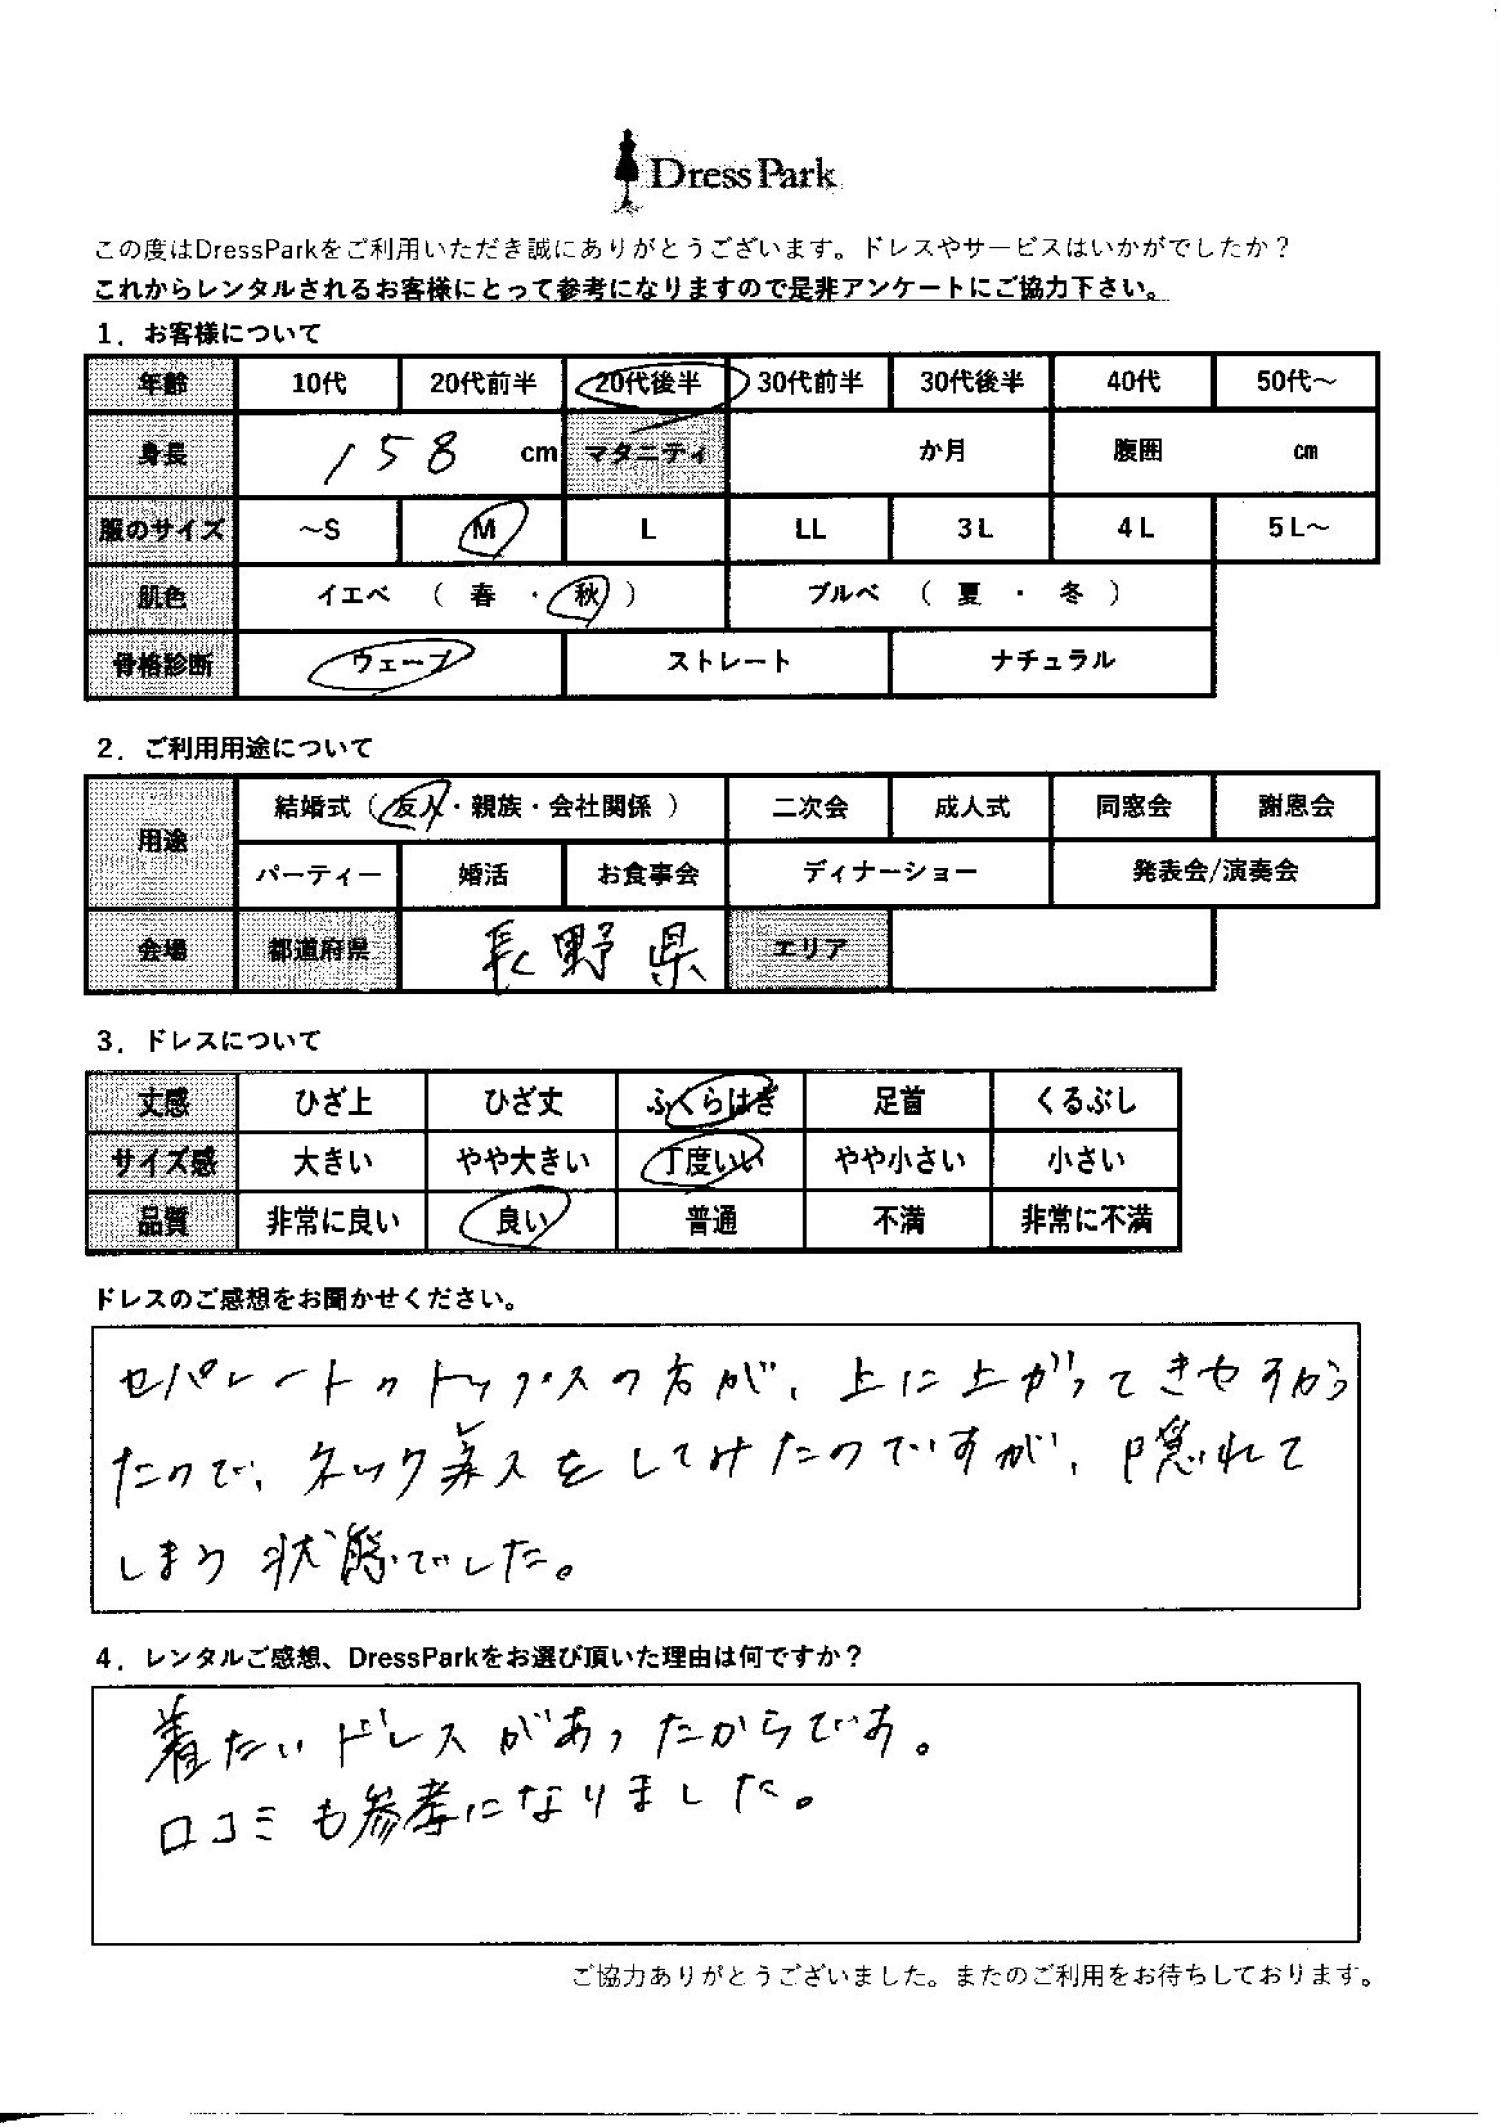 DressPark
この度はDressParkをご利用いただき誠にありがとうございます。ドレスやサービスはいかがでしたか？
これからレンタルされるお客様にとって参考になりますので是非アンケートにご協力下さい。
1．お客様について
年齢 10代 20代前半 20代後半 30代前半 30代後半 40代 50代～
身長 158 cm マタニティ か月 腹囲 cm
服のサイズ ～S M L LL 3L 4L 5L～
肌色 イエベ （ 春 ・ 秋 ） ブルベ （ 夏 ・ 冬 ）
骨格診断 ウェーブ ストレート ナチュラル
2．ご利用用途について
用途 結婚式（ 友人・親族・会社関係 ） 二次会 成人式 同窓会 謝恩会
パーティー 婚活 お食事会 ディナーショー 発表会/演奏会
会場 都道府県 長野県 エリア
3．ドレスについて
丈感 ひざ上 ひざ丈 ふくらはぎ 足首 くるぶし
サイズ感 大きい やや大きい 丁度いい やや小さい 小さい
品質 非常に良い 良い 普通 不満 非常に不満
ドレスのご感想をお聞かせください。
セパレートのトップスの方が、上に上がってきやすかっ
たので、ネックレスをしてみたのですが、隠れて
しまう状態でした。
4．レンタルご感想、DressParkをお選び頂いた理由は何ですか？
着たいドレスがあったからです。
口コミも参考になりました。
ご協力ありがとうございました。またのご利用をお待ちしております。